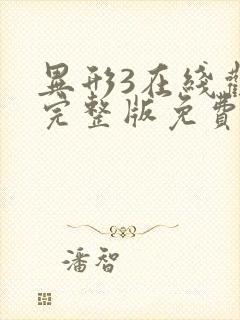 異形3在綫
完整版免費
潘智